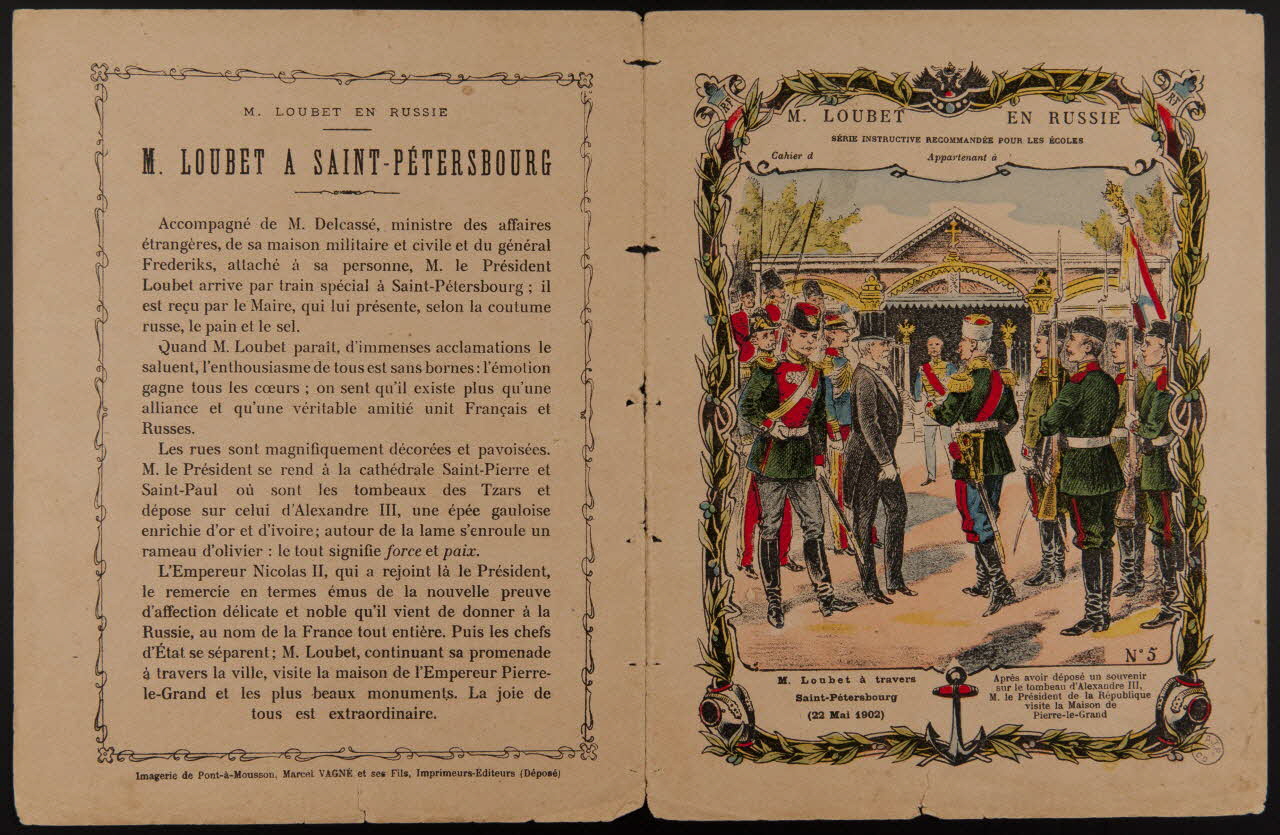 M. LOUBET EN RUSSIE
M. LOUBET A SAINT-PÉTERSBOURG
Accompagné de M. Delcassé, ministre des affaires
étrangères, de sa maison militaire et civile et du général
Frederiks, attaché à sa personne, M. le Président
Loubet arrive par train spécial à Saint-Pétersbourg ; il
est reçu par le Maire, qui lui présente, selon la coutume
russe, le pain et le sel.
Quand M. Loubet paraît, d'immenses acclamations le
saluent, l'enthousiasme de tous est sans bornes : l'émotion
gagne tous les cœurs ; on sent qu'il existe plus qu'une
alliance et qu'une véritable amitié unit Français et
Russes.
Les rues sont magnifiquement décorées et pavoisées.
M. le Président se rend à la cathédrale Saint-Pierre et
Saint-Paul où sont les tombeaux des Tzars et
dépose sur celui d'Alexandre III, une épée gauloise
enrichie d'or et d'ivoire ; autour de la lame s'enroule un
rameau d'olivier : le tout signifie force et paix.
L'Empereur Nicolas II, qui a rejoint là le Président,
le remercie en termes émus de la nouvelle preuve
d'affection délicate et noble qu'il vient de donner à la
Russie, au nom de la France tout entière. Puis les chefs
d'État se séparent ; M. Loubet, continuant sa promenade
à travers la ville, visite la maison de l'Empereur Pierre-
le-Grand et les plus beaux monuments. La joie de
tous est extraordinaire.
Imagerie de Pont-à-Mousson, Marcel VAGNÉ et ses Fils, Imprimeurs-Editeurs (Déposé)
RF
RF
M. LOUBET EN RUSSIE
SÉRIE INSTRUCTIVE RECOMMANDÉE POUR LES ÉCOLES
Cahier d Appartenant à
N° 5
M. Loubet à travers
Saint-Pétersbourg
(22 Mai 1902)
Après avoir déposé un souvenir
sur le tombeau d'Alexandre III,
M. le Président de la République
visite la Maison de
Pierre-le-Grand